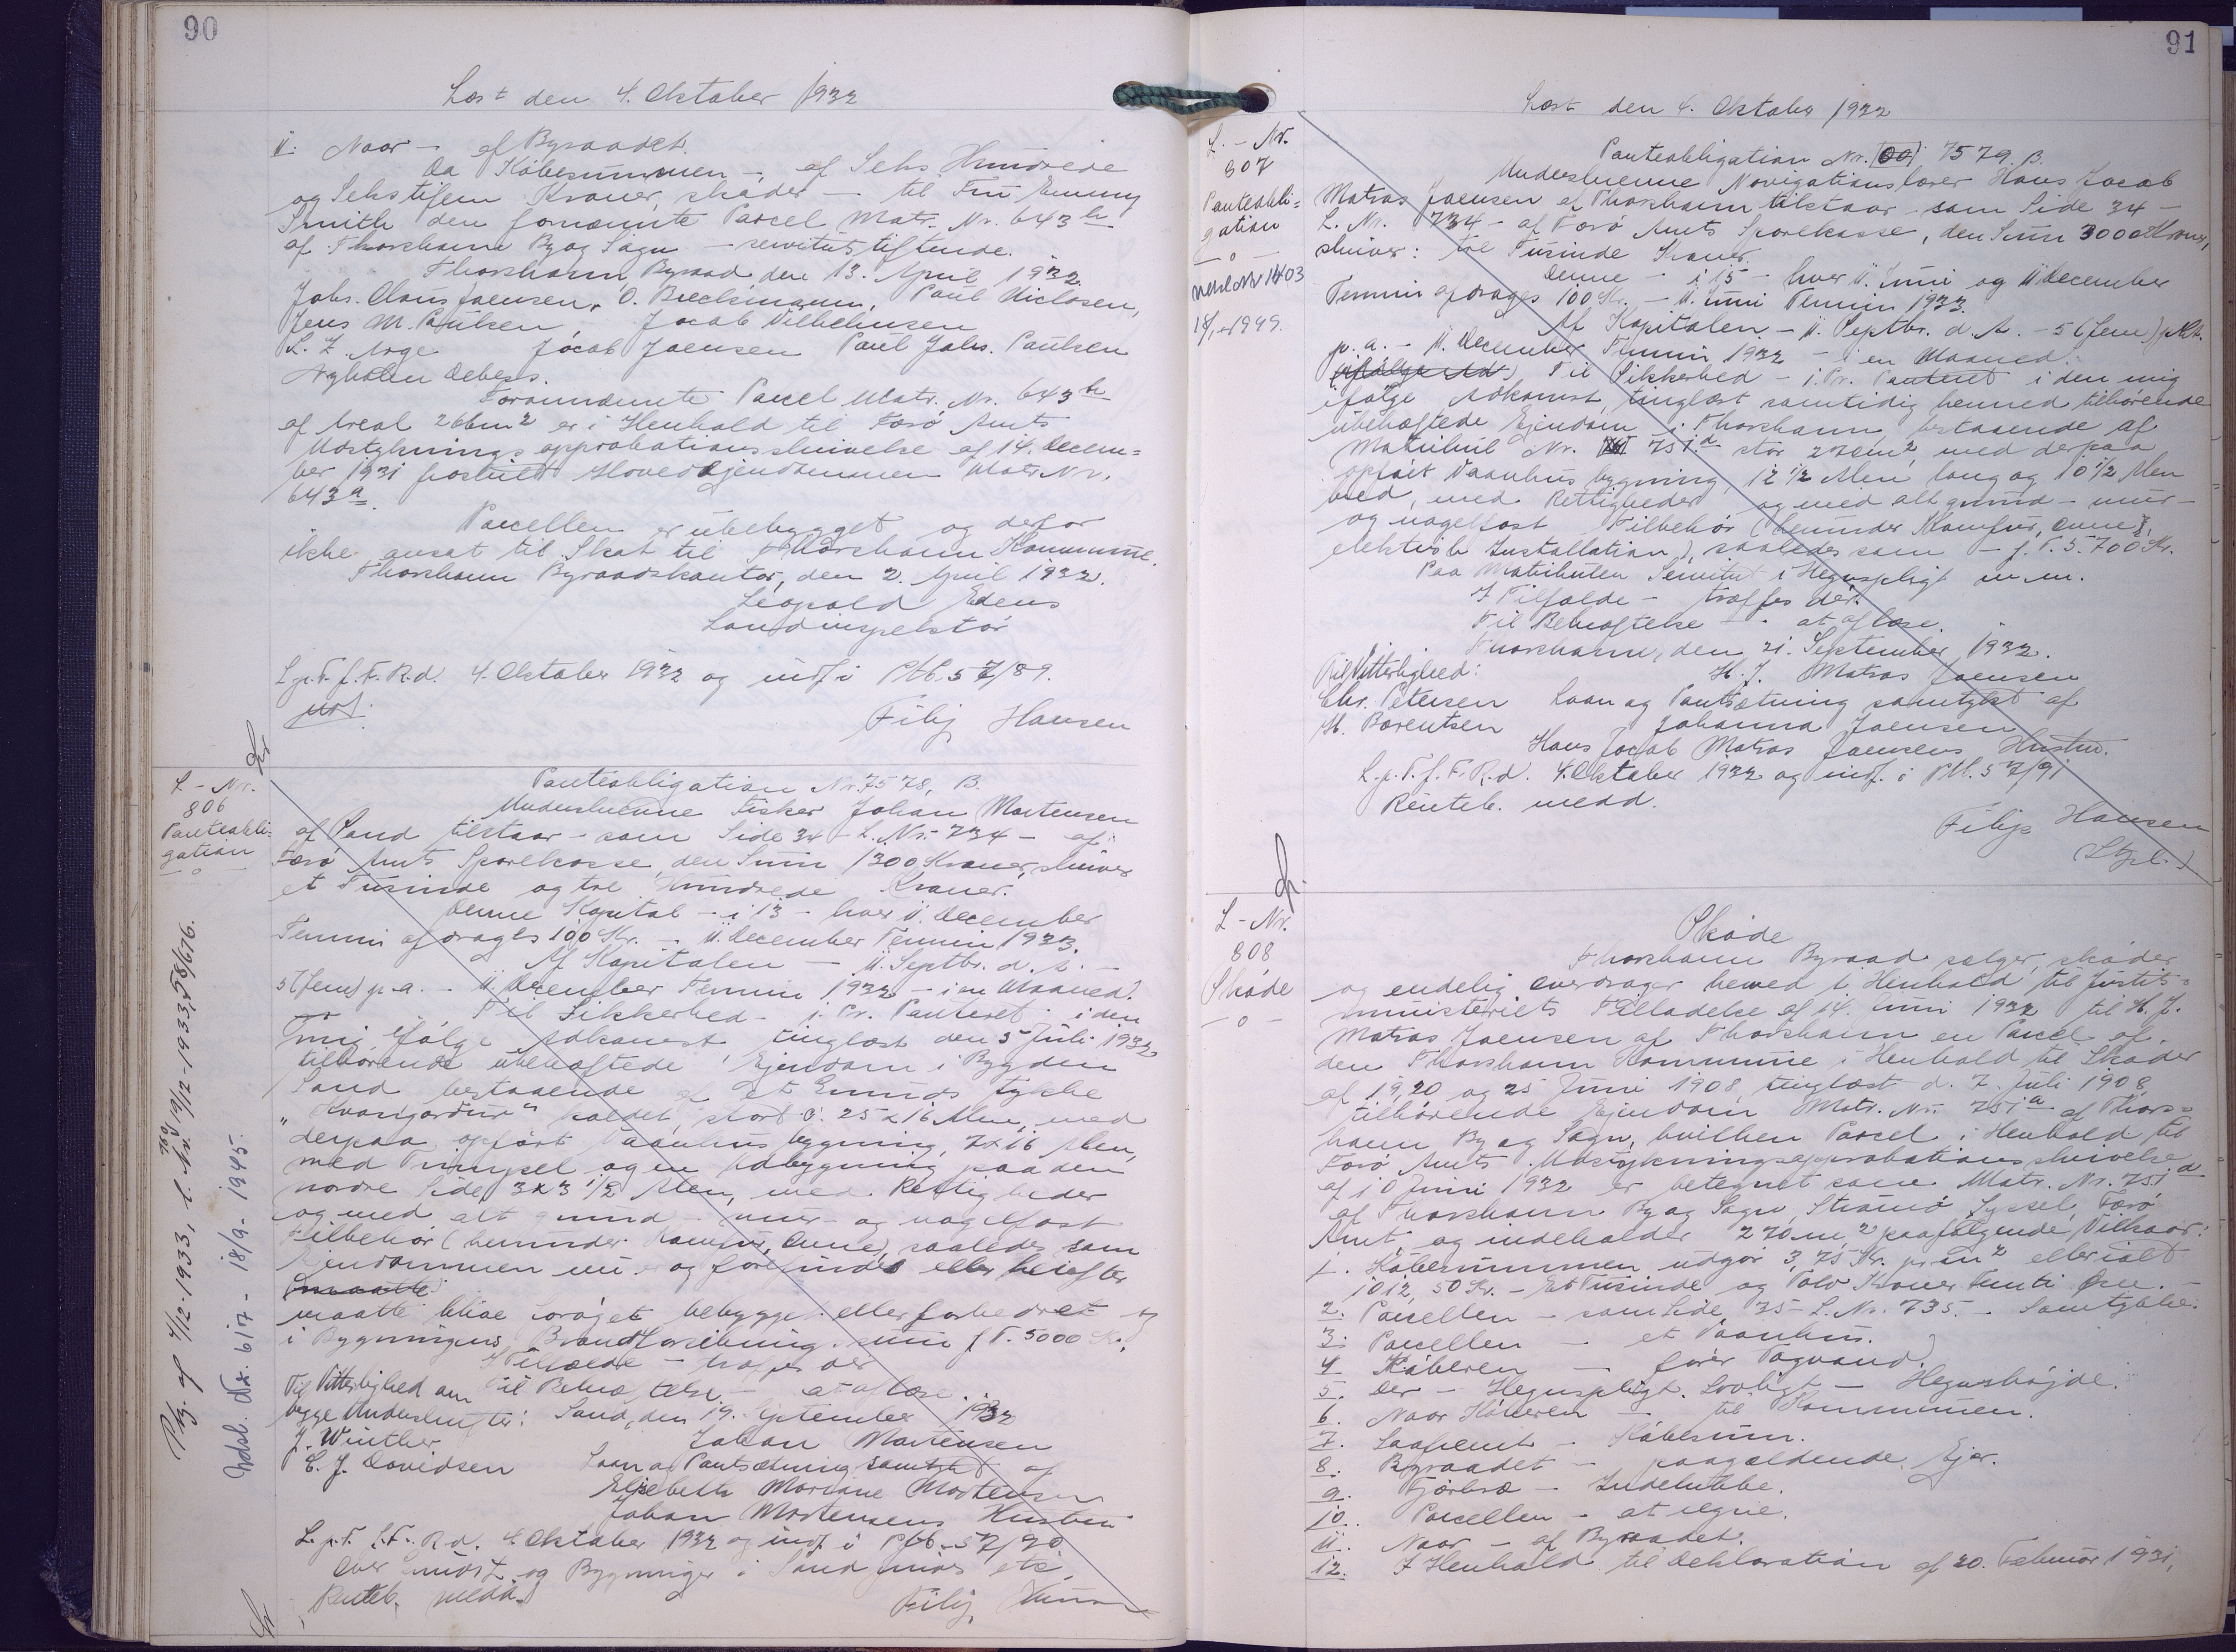 90
Læst den 4. Oktober 1932
11. Naar - af Byraadet.
Da Købesummen - af Seks Hundrede
og Sekstifem Kroner, skøder - til Frú Emmy
Smith den fornævnte Parcel Matr. Nr. 643h
af Thorshavn By og Sogn - servitutstiftende.
Thorshavn Byraad, den 13. April 1932.
Johs. Claus Joensen, O. Poul Niclasen,
Jens M. Poulsen, Jacob Vilhelmsen
L. Z. Arge Jacob Joensen Poul Johs. Poulsen
Debess.
Forannævnte Parcel Matr. Nr. 643h
af Areal 266m2 er i Henhold til Færø Amts
Udstyknings approbationsskrivelse af 14. Decem=
ber 1931 fraskilt Hovedejendommen Matr. Nr.
643a.
Parcellen er ubebygget og derfor
ikke ansat til Skat til Thorshavn Kommune.
Thorshavn Byraadskontor, den 2. April 1932.
Leopold
Landinspektør
L.p.T. f. F. R.d. 4. Oktober 1932 og indf. i Ptb. 57/89.
Filip Hansen
L - Nr.
806
Panteobli=
gation
- o -
Panteobligation Nr. 7578, B.
Underskrevne Fisker Johan Mortensen
af Sand tilstaar - som Side 34 - L. Nr. 734 - af
Færø Amts Sparekasse, den Sum 1300 Kroner, skriver
et Tusinde og tre Hundrede Kroner.
Denne Kapital - i 13 - hver 11. December
Termin afdrages 100 Kr. - 11. December Termin 1933.
Af Kapitalen - 11. Septbr. d. A. -
5 (fem) p.a. - 11. December Termin 1932 - i en Maaned.
Til Sikkerhed - i. Pr. Panteret i den
mig ifølge Adkomst tinglæst den 5 Juli 1932
tilhørende ubehæftede Ejendom i Bygden
Sand bestaaende af Et Grunds tykke
kaldet, stort c: 25 x 16 Alen, med
derpaa opført Vaanhus bygning, 7x16 Alen,
med og en Udbygning paa den
nordre Side, 3x3 1/2 Alen, med Rettigheder
og med alt grund - mur - og nagelfast
Tilbehør (herunder Komfur, Ovne), saaledes som
Ejendommen nu er og forefindes eller herefter
maatte blive forøget bebygget eller forbedret - og
i Bygningens Brandforsikrings sum f. T. 5000 Kr.
I Tilfælde - træffes der
Til Vitterlighed om Til Bekræftelse - at aflæse.
begge Underskrifter: Sand, den 19. September 1932
J. Winther Johan Mortensen
E. J. Davidsen Laan og Pantsætning samtykt af
Elisebeth Mariane Mortensen
Johan Mortensens Hustru
L.p.T. f. F. R.d. 4. Oktober 1932 og indf. i Ptb. 57/90
over Grundst. og Bygninger i Sand
Renteb. medd.
Filip Hansen
Ptg. af 4/12-1933, L. Nr. 769, 19/12-1933, 58/676.
Udsl. Nr. 617 - 18/9-1945.
91
Læst den 4. Oktober 1932
L. - Nr.
807
Panteobli=
gation
- o -
Panteobligation Nr. 7579. B.
Underskrevne Navigationslærer Hans Jacob
Matras Joensen af Thorshavn tilstaar - som Side 34 -
L. Nr. 734 - af Færø Amts Sparekasse, den Sum 3000 Kroner,
skriver: tre Tusinde Kroner.
Denne - i 15 - hver 11. Juni og 11 December
Termin afdrages 100 Kr. - 11. Juni Termin 1933.
Af Kapitalen - 11. Septbr. d. A. - 5 (fem) pCt.
p. a. - 11. December Termin 1932 - i en Maaned.
Til Sikkerhed - i. Pr. Panteret i den mig
ifølge Adkomst, tinglæst samtidig hermed tilhørende
ubehæftede Ejendom i Thorshavn, bestaaende af
Matrikul Nr. 751d stor 270m2, med derpaa
opført Vaanhus bygning, 12 1/2 Alen lang og 10 1/2 Alen
bred, med Rettigheder og med alt grund - mur -
og nagelfast Tilbehør (herunder Komfur, Ovne,
elektrisk Installation), saaledes som - f. T. 5.700 Kr.
Paa Matriklen Servitut i Hegnspligt m. m.
I Tilfælde - træffes der.
Til Bekræftelse - at aflæse.
Thorshavn, den 21. September 1932.
Til Vitterlighed: H. J. Matras Joensen
Chr. Petersen Laan og Pantsætning samtykt af
H. Berentsen Johanna Joensen
Hans Jacob Matras Joensens Hustru.
L.p.T. f. F. R.d. 4. Oktober 1932 og indf. i Ptb. 57/91
Renteb. medd.
Filip Hansen
L - Nr.
808
Skøde
- o -
Skøde
Thorshavn Byraad sælger, skøder
og endelig overdrager herved i Henhold til Justits=
ministeriets Tilladelse af 14. Juni 1932 til H. J.
Matras Joensen af Thorshavn en Parcel af
den Thorshavn Kommune i Henhold til Skøder
af 19, 20 og 25 Juni 1908, tinglæst d. 7. Juli 1908
tilhørende Ejendom Matr. Nr. 751a af Thors=
havn By og Sogn, hvilken Parcel i Henhold til
Færø Amts Udstykningsapprobationsskrivelse
af 10 Juni 1932 er betegnet som Matr. Nr. 751d
af Thorshavn By og Sogn, Strømø Syssel, Færø
Amt og indeholder 270m2 paa følgende Vilkaar:
1. Købesummen udgør 3,75 Kr. pr. m2 eller ialt
1012,50 Kr. - Et Tusinde og Tolv Kroner femti Øre. -
2. Parcellen - som Side 75 - L. Nr. 735. - Samtykke.
3. Parcellen - et Vaanhus.
4 Køberen - fører Tagvand.
5. Der - Hegnspligt. Lovligt - Hegnshøjde.
6. Naar Køberen - til Kommunen.
7. Saafremt - Købesum.
8. Byraadet - paagældende Ejer.
9. Fjerkræ - Indelukke.
10. Parcellen - at hegne.
11. Naar - af Byraadet.
12. I Henhold til Deklaration af 20. Februar 1931,